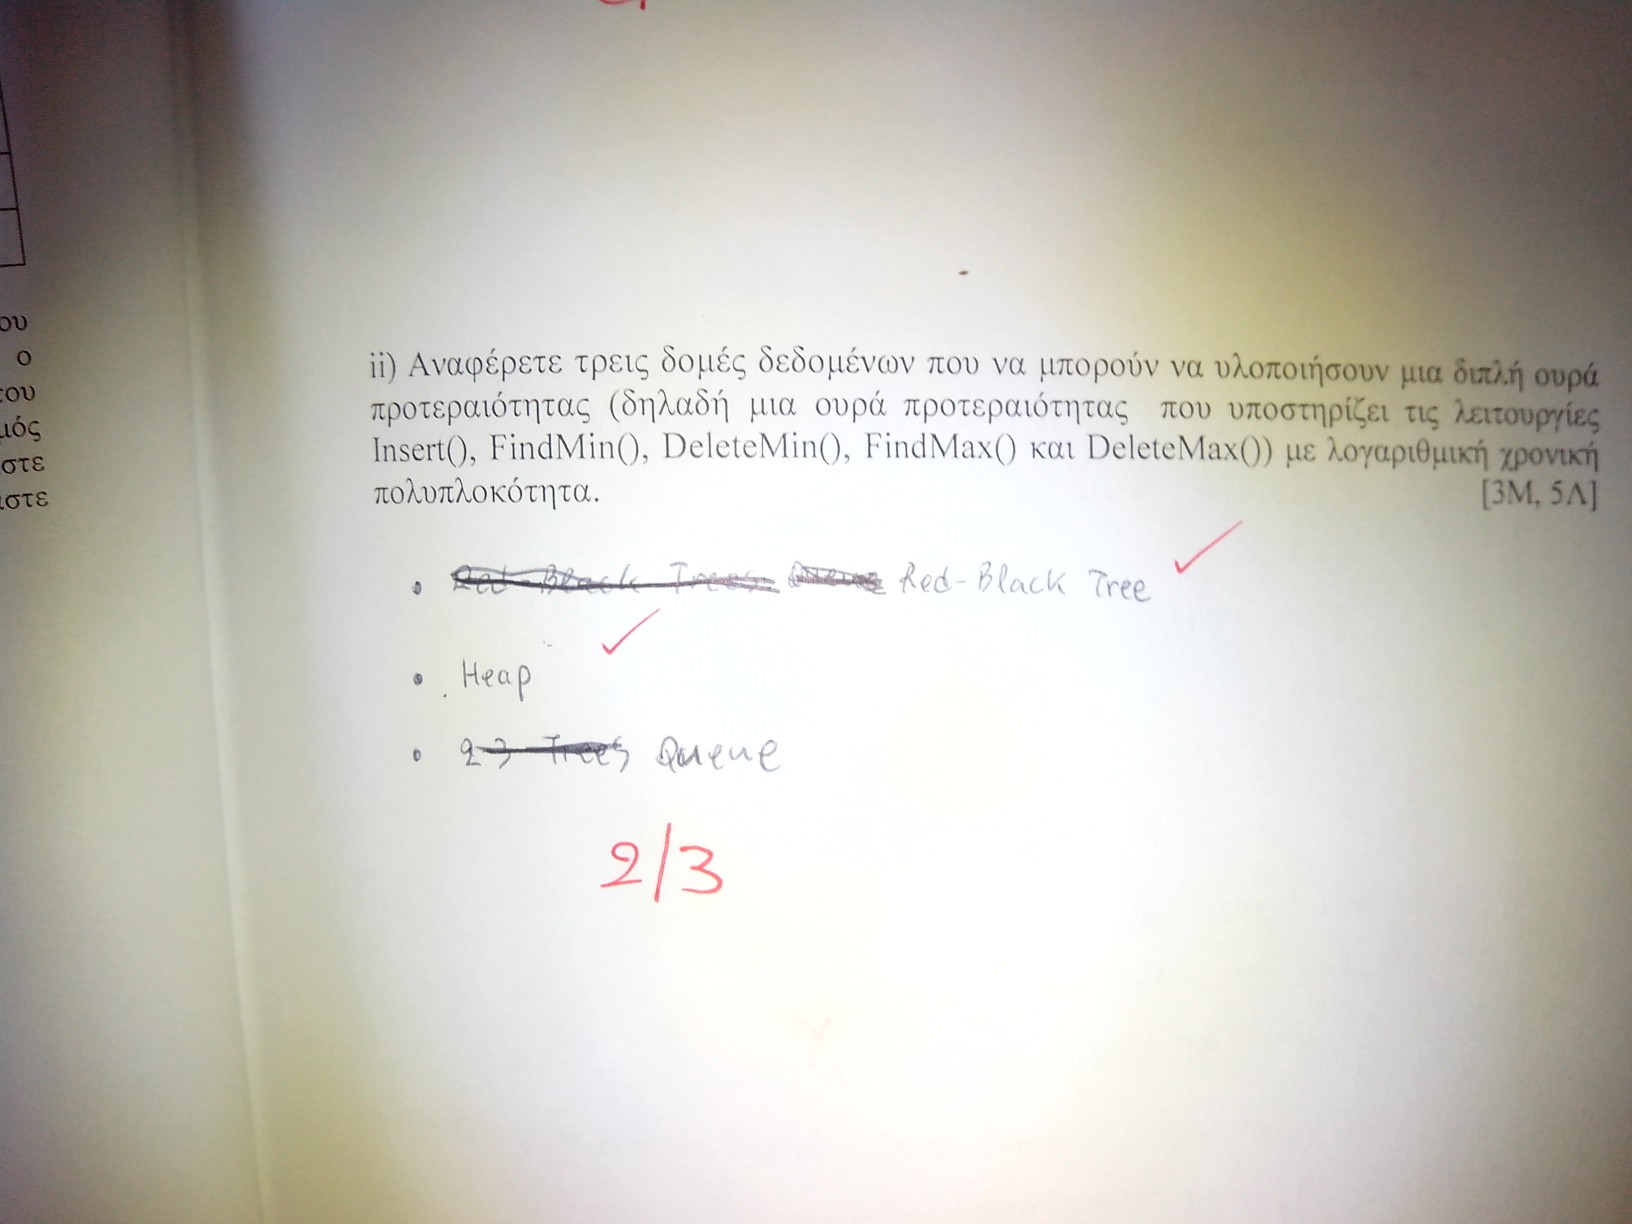 ου
ο
του
μός
στε
ιστε
ii) Αναφέρετε τρεις δομές δεδομένων που να μπορούν να υλοποιήσουν μια διπλή ουρά
προτεραιότητας (δηλαδή μια ουρά προτεραιότητας που υποστηρίζει τις λειτουργίες
Insert(), FindMin(), DeleteMin(), FindMax() και DeleteMax()) με λογαριθμική χρονική
πολυπλοκότητα. [3Μ, 5Λ]
• Red-Black Trees Queue Red-Black Tree
• Heap
• 2-3 Trees Queue
2/3